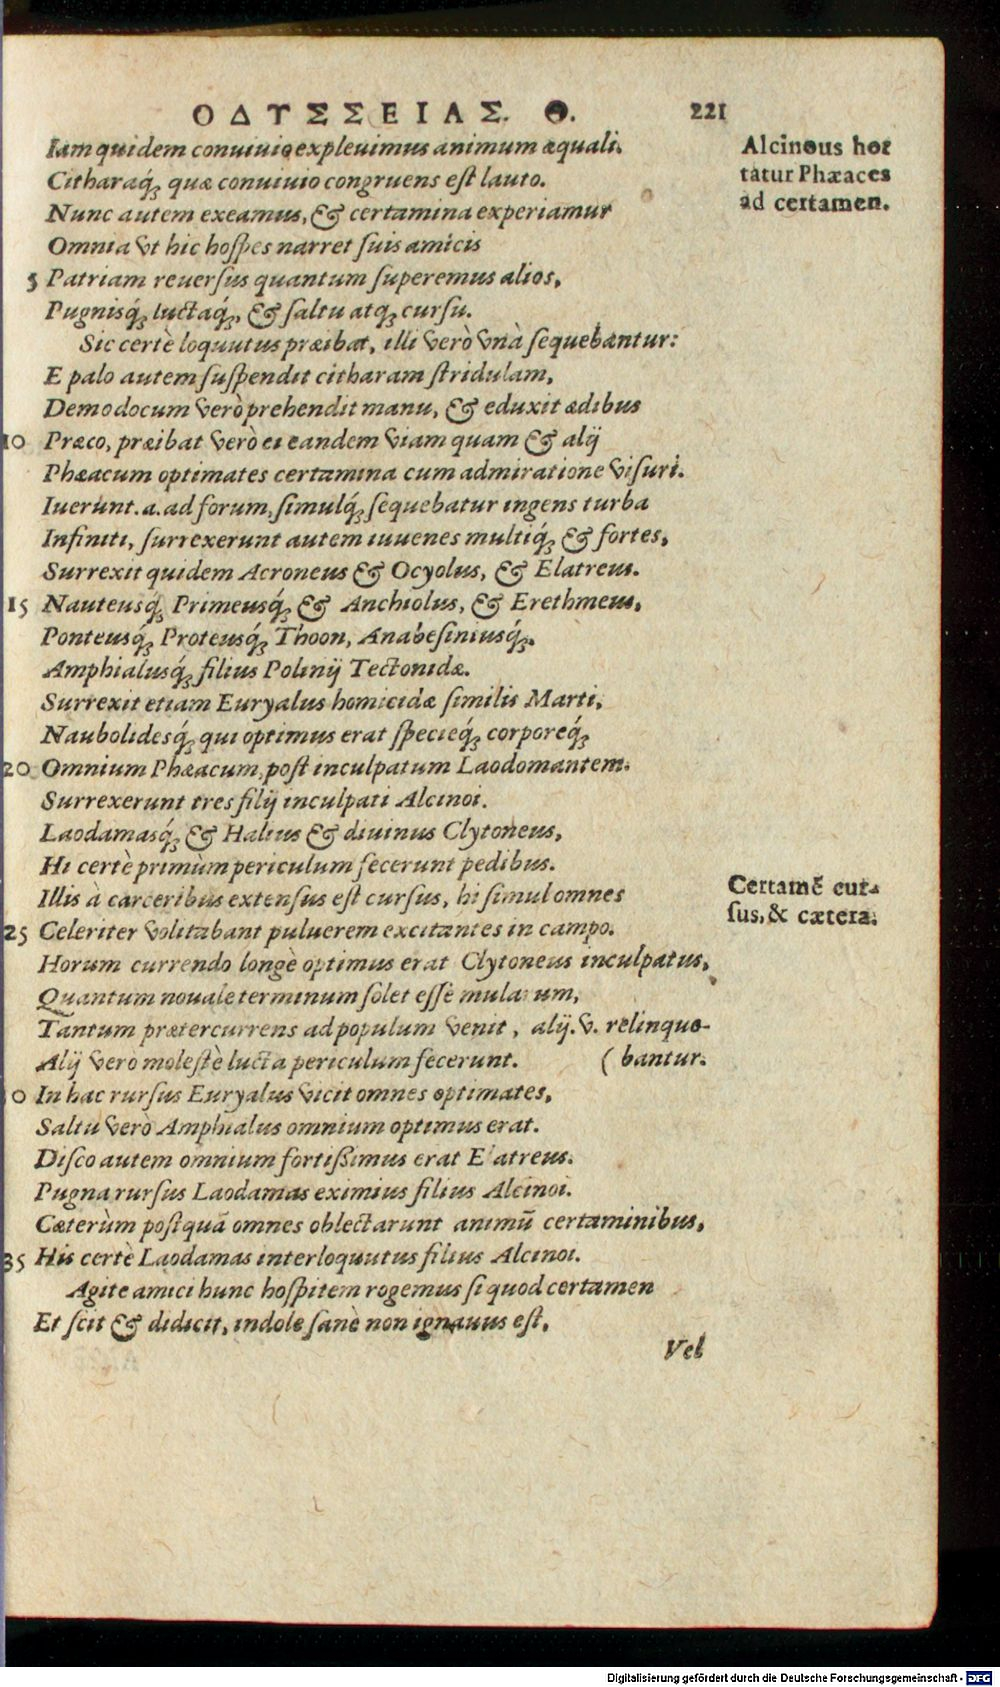 ΟΔΥΣΣΕΙΑΣ. Θ. 221
Iam quidem conuiuio expleuimus animum æquali.
Citharaq́; quæ conuiuio congruens est lauto.
Nunc autem exeamus, & certamina experiamur
Omnia vt hic hospes narret suis amicis
5 Patriam reuersus quantum superemus alios,
Pugnisq́; luctaq́;, & saltu atq; cursu.
Sic certè loquutus præibat, illi verò vnà sequebantur:
E palo autem suspendit citharam stridulam,
Demodocum verò prehendit manu, & eduxit ædibus
10 Præco, præibat verò ei eandem viam quam & alij
Phæacum optimates certamina cum admiratione visuri.
Iuerunt .a. ad forum, simulq́; sequebatur ingens turba
Infiniti, surrexerunt autem iuuenes multiq́; & fortes,
Surrexit quidem Acroneus & Ocyolus, & Elatreus.
15 Nauteusq́; Primeusq́; & Anchiolus, & Erethmeus,
Ponteusq́; Proteusq́; Thoon, Anabesiniusq́;.
Amphialusq́; filius Polinij Tectonidæ.
Surrexit etiam Euryalus homicidæ similis Marti,
Naubolidesq́; qui optimus erat specieq́; corporeq́;
20 Omnium Phæacum, post inculpatum Laodomantem.
Surrexerunt tres filij inculpati Alcinoi.
Laodamasq́; & Halius & diuinus Clytoneus,
Hi certè primùm periculum fecerunt pedibus.
Illis à carceribus extensus est cursus, hi simul omnes
25 Celeriter volitabant puluerem excitantes in campo.
Horum currendo longè optimus erat Clytoneus inculpatus,
Quantum nouale terminum solet esse mularum,
Tantum prætercurrens ad populum venit, alij. v. relinque-
Alij vero molestè lucta periculum fecerunt. (bantur.
0 In hac rursus Euryalus vicit omnes optimates,
Saltu verò Amphialus omnium optimus erat.
Disco autem omnium fortißimus erat Elatreus.
Pugna rursus Laodamas eximius filius Alcinoi.
Cæterùm postquã omnes oblectarunt animũ certaminibus,
35 His certè Laodamas interloquutus filius Alcinoi.
Agite amici hunc hospitem rogemus si quod certamen
Et scit & didicit, indole sanè non ignauus est,
Vel
Alcinous hor
tatur Phæaces
ad certamen.
Certamẽ cur-
sus, & cætera.
Digitalisierung gefördert durch die Deutsche Forschungsgemeinschaft - DFG